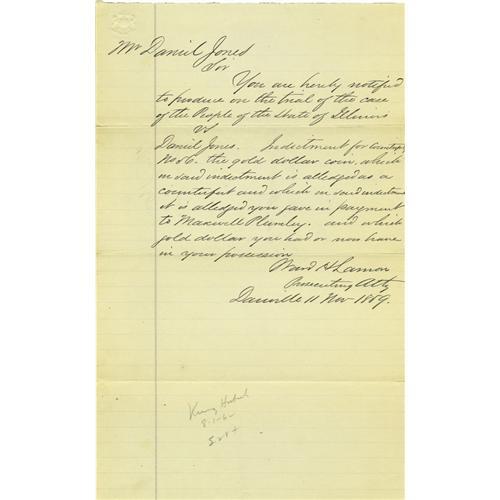 Mr Daniel Jones
Sir
You are hereby notified
to produce on the trial of the case
of the People of the State of Illinois
vs
Daniel Jones. Indictment for
No 56. the gold dollar coin, which
in said indictment is alledged as a
counterfeit and which in said indictment
it is alledged you gave in payment
to Maxwell Plumley. and which
gold dollar you had or now have
in your possession
Ward H Lamon
Prosecuting Atty
Danville 11 Nov 1859.
8-1-62